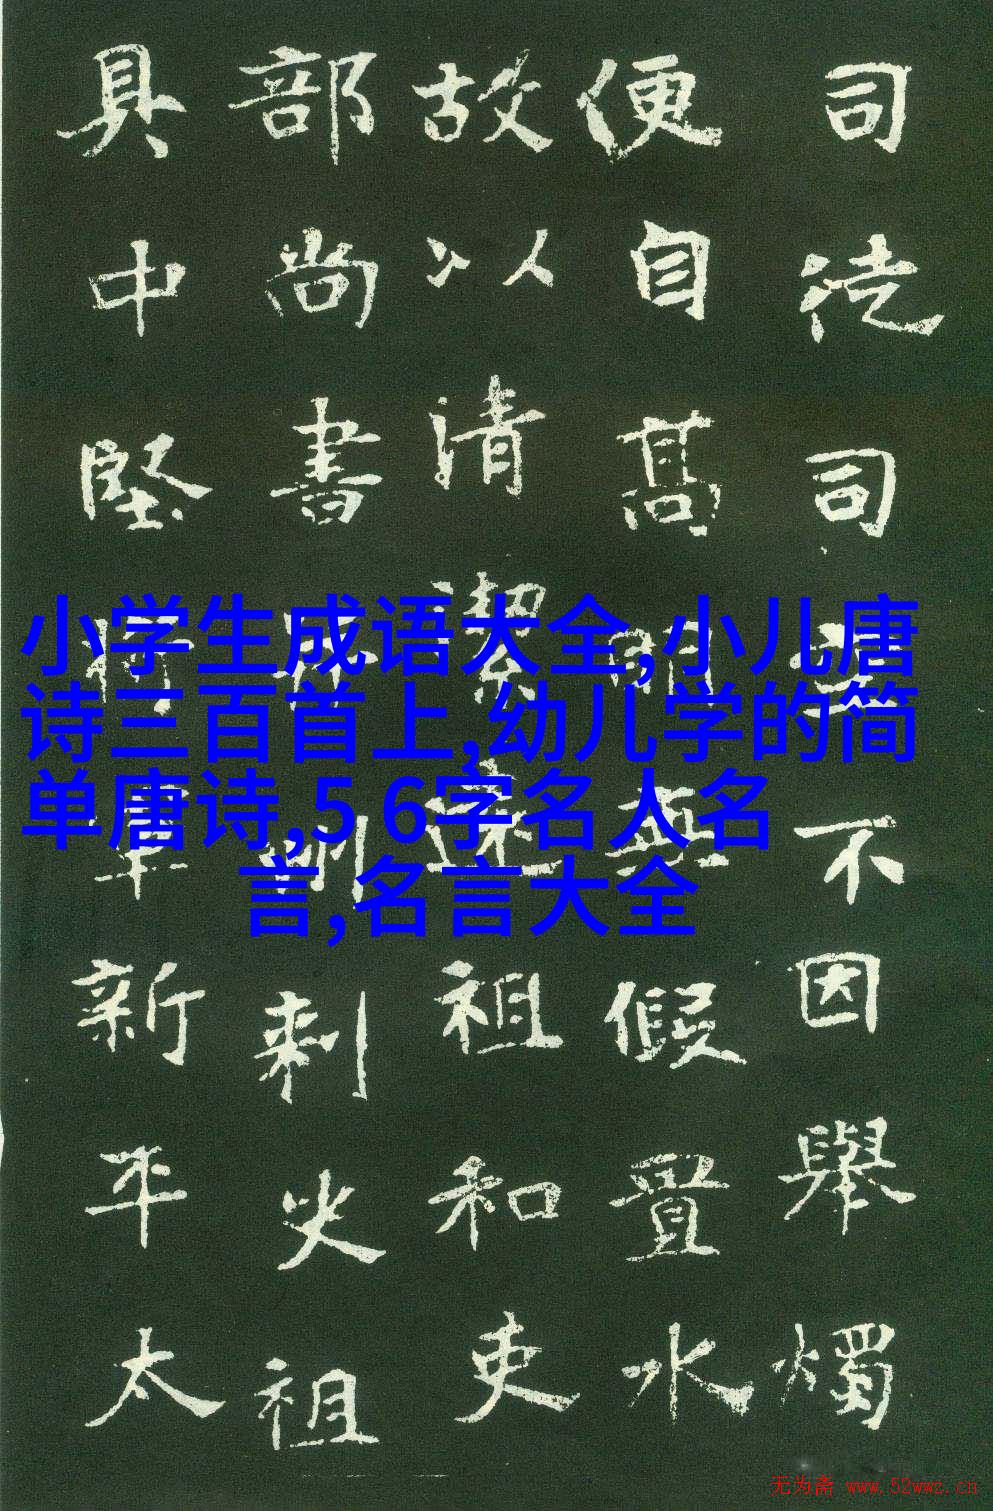 小学生成语大全,小儿唐
诗三百首上,幼儿学的简
单唐诗,5 6字名人名
言,名言大全
司徒司空不因舉燭
便自高明無假置水
故以清潔祖和吏
部尚書州刺史祖
具中堅將軍新平太
无为斋 www.52wwz.cn